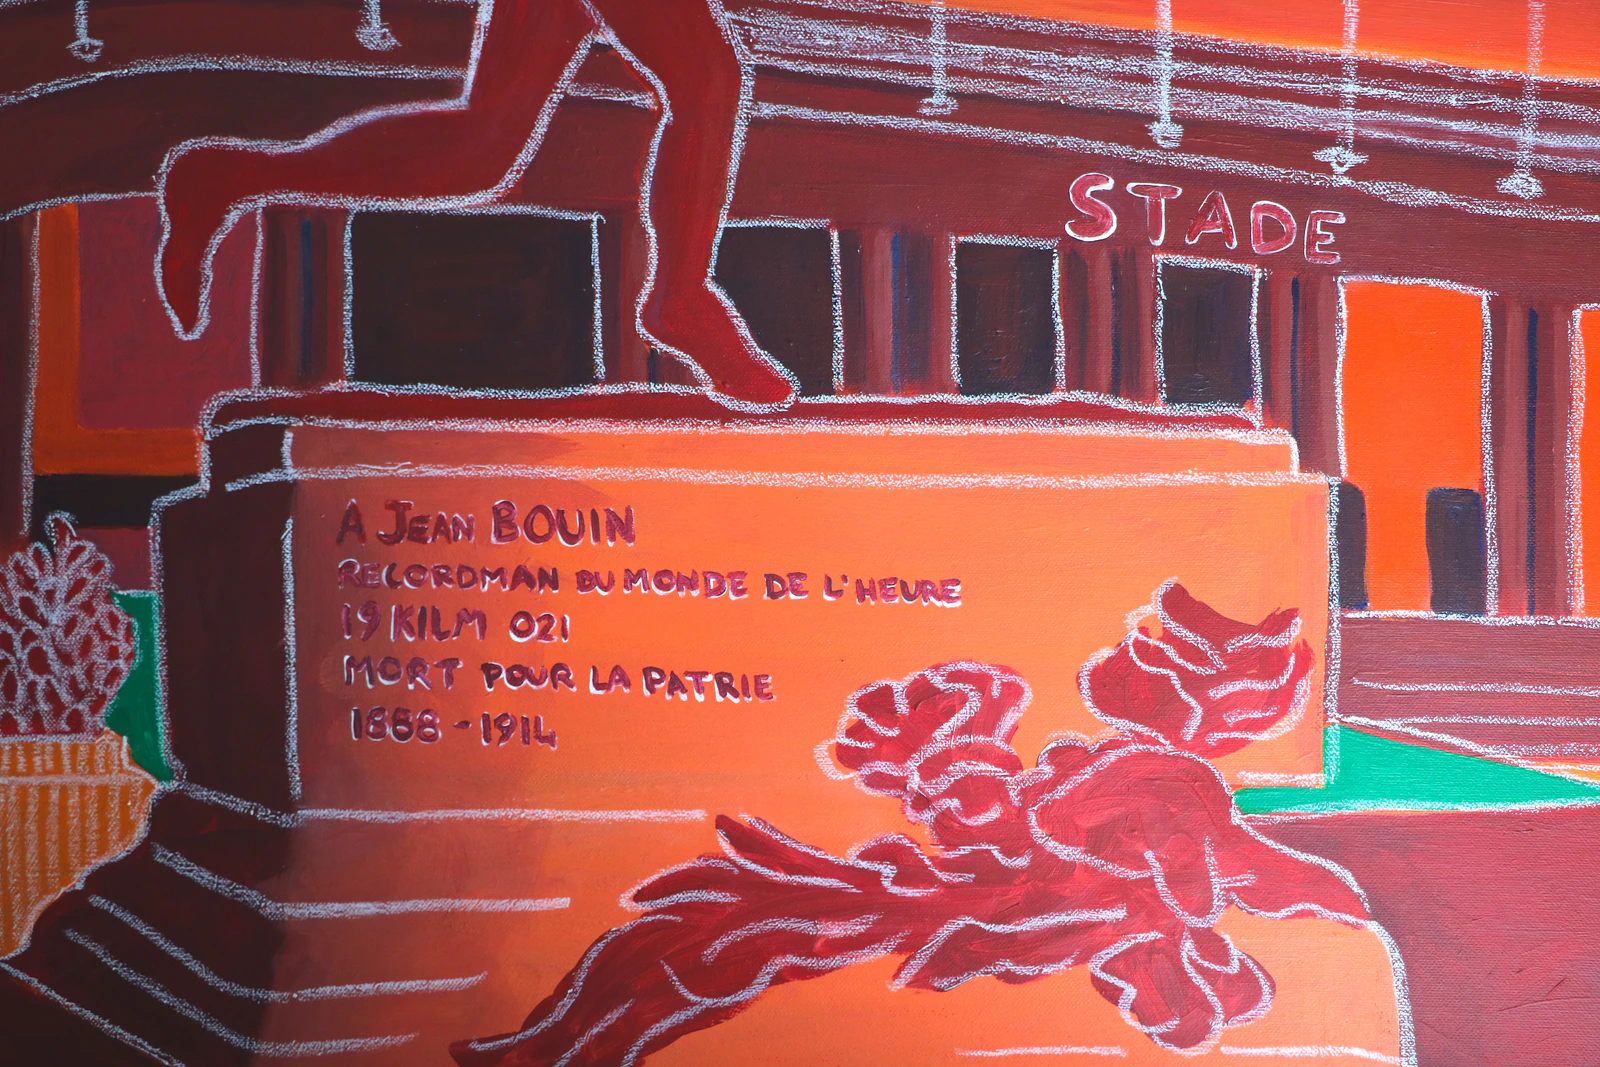 STADE
A JEAN BOUIN
RECORDMAN DU MONDE DE L'HEURE
19 KILM 021
MORT POUR LA PATRIE
1888 - 1914